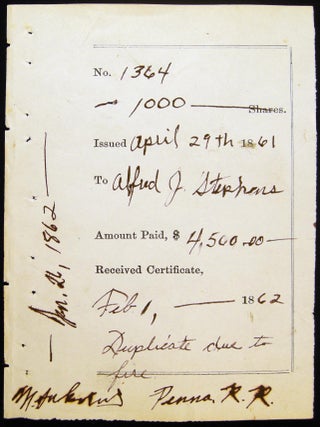 No. 1364
1000 Shares.
Issued April 29th 1861
To Alfred J. Stephens
Amount Paid, $ 4,500.00
Received Certificate,
Feb 1, 1862
Duplicate due to
fire
Penna. R. R.
1862